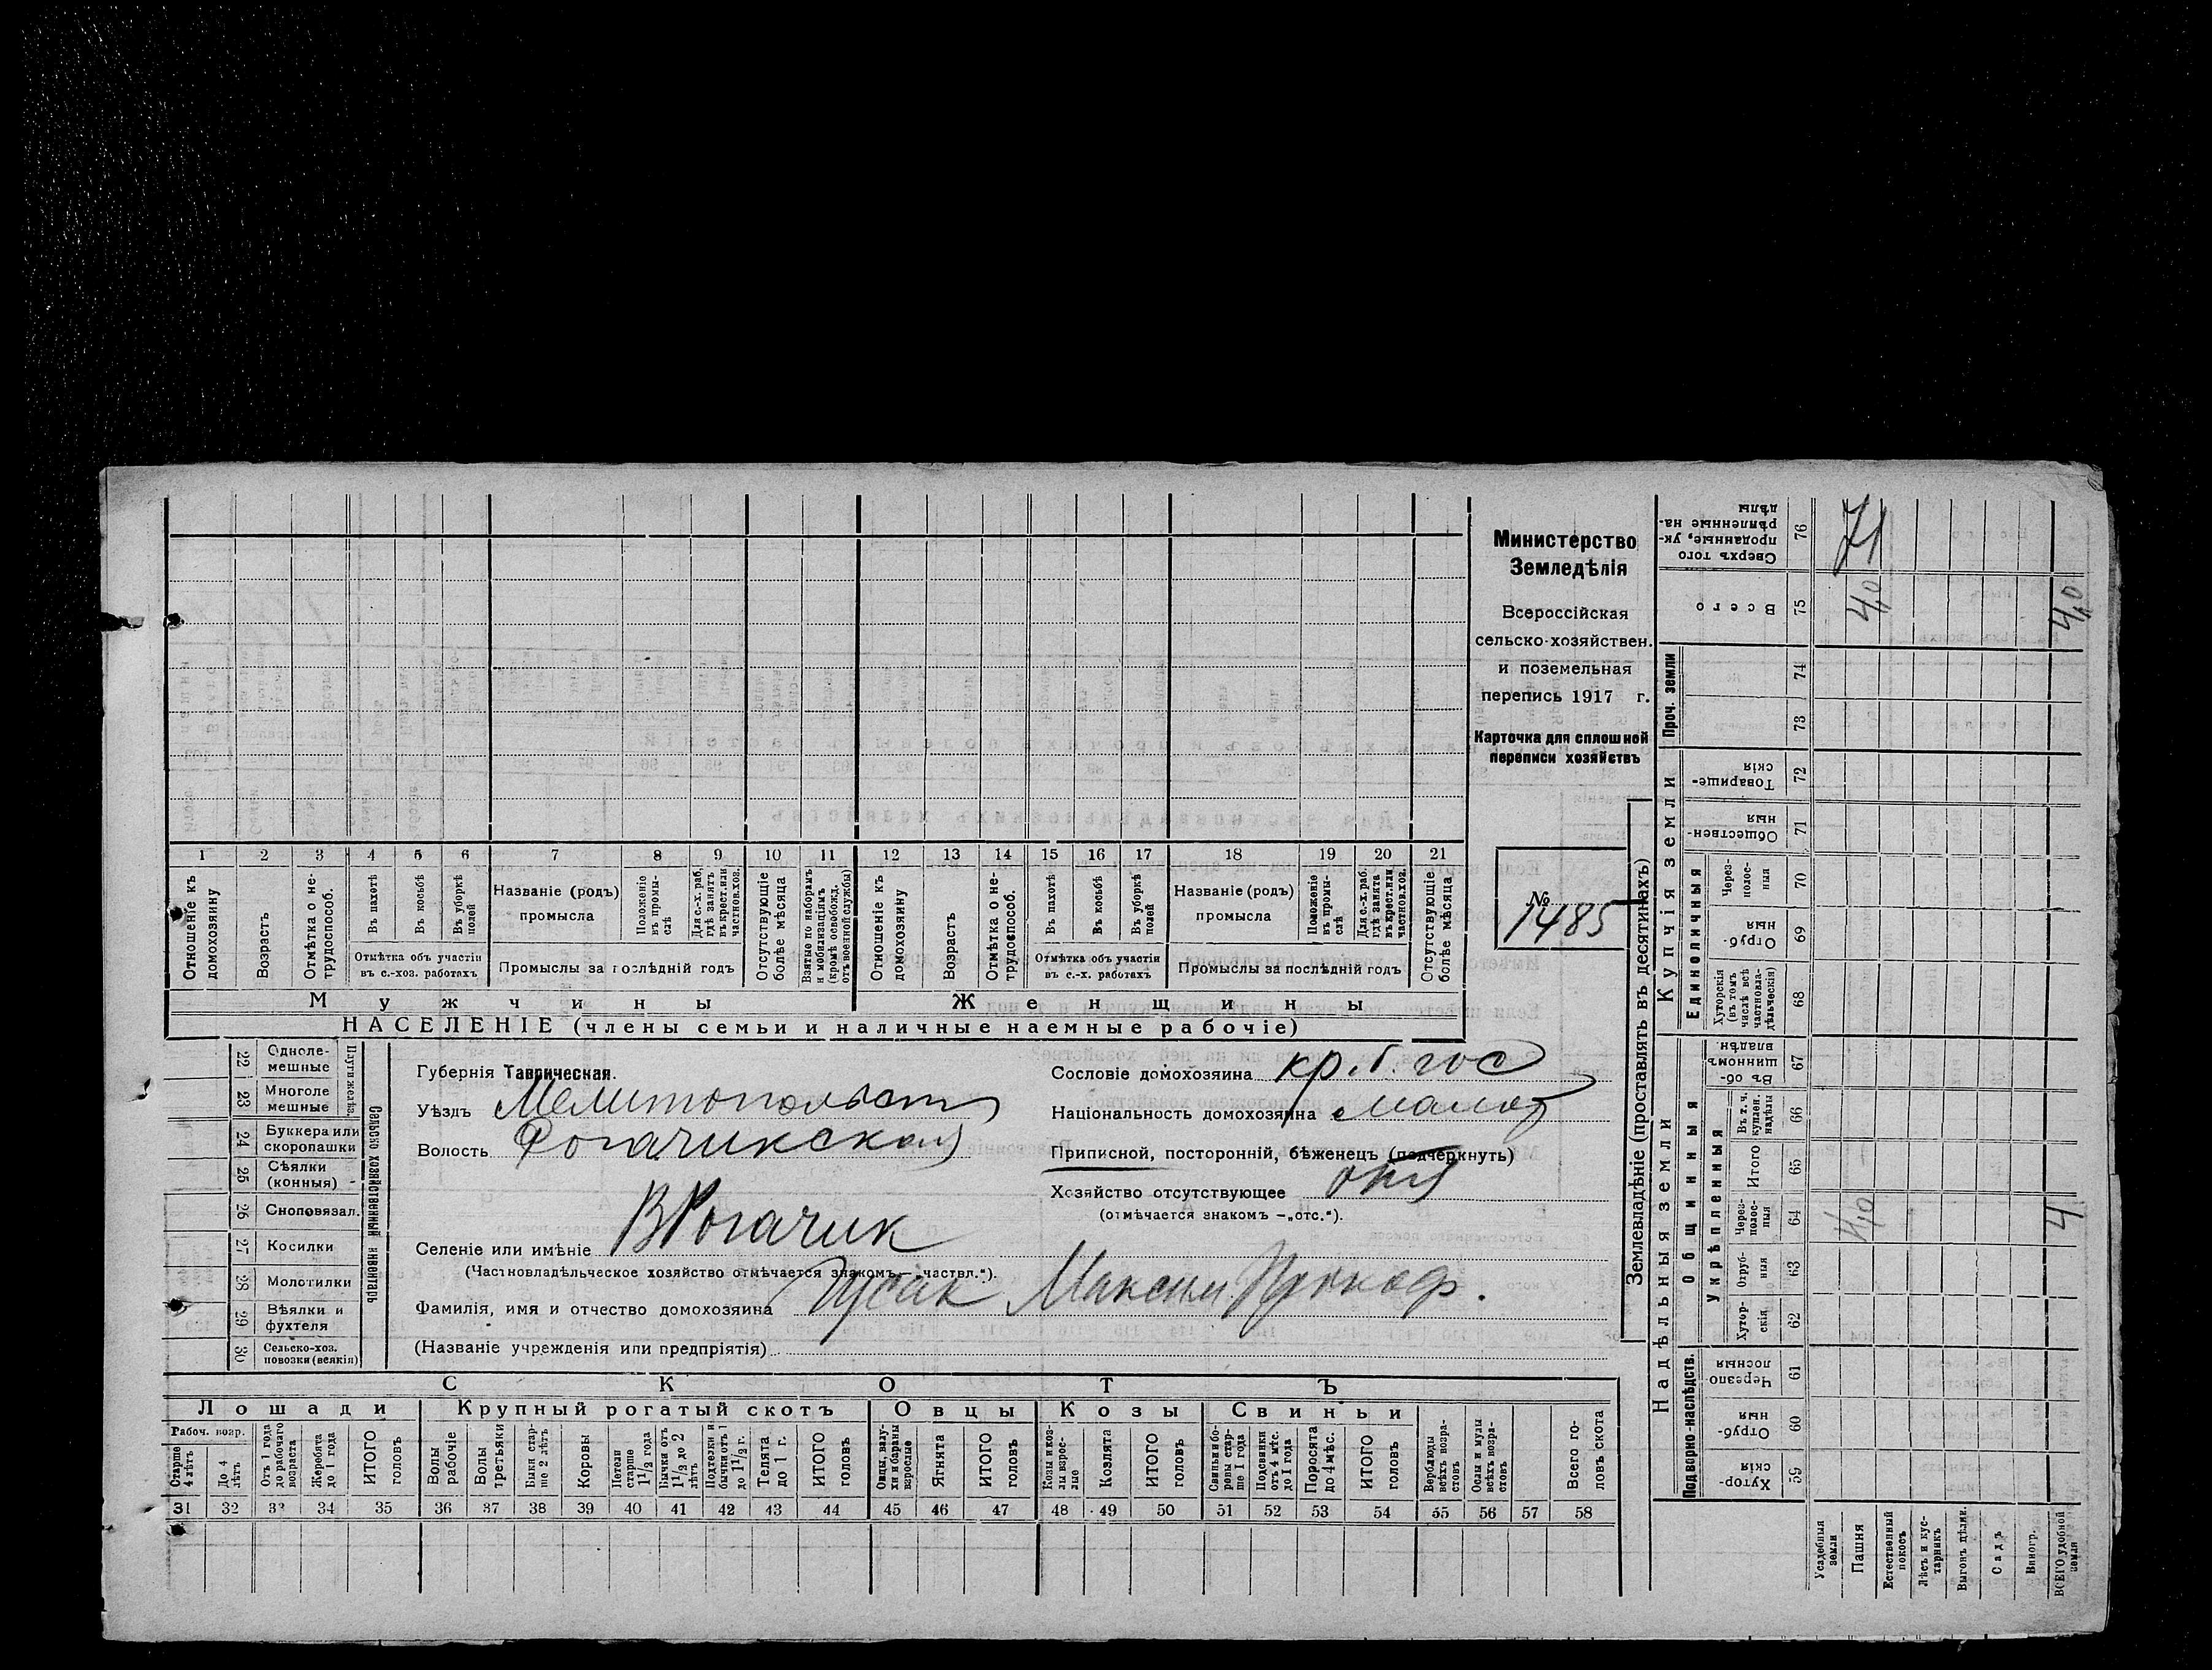 Министерство
Земледѣлія
Всероссійская
сельско-хозяйствен.
и поземельная
перепись 1917 г.
Карточка для сплошной
переписи хозяйствъ
№
1485
1 2 3 4 5 6 7 8 9 10 11 12 13 14 15 16 17 18 19 20 21
Отношеніе къ домохозяину
Возрастъ
Отмѣтка о нетрудоспособ.
Въ пахотѣ
Въ косьбѣ
Въ уборкѣ полей
Отмѣтка объ участіи
въ с.-хоз. работахъ
Названіе (родъ)
промысла
Положеніе въ промыслѣ
Для с.-х. раб. гдѣ занятъ въ крест. или частнов. хоз.
Промыслы за послѣдній годъ
Отсутствующіе болѣе мѣсяца
Взятые по наборамъ и мобилизаціямъ (кромѣ освобожд. отъ военной службы)
Отношеніе къ домохозяину
Возрастъ
Отмѣтка о нетрудоспособ.
Въ пахотѣ
Въ косьбѣ
Въ уборкѣ полей
Отмѣтка объ участіи
въ с.-х. работахъ
Названіе (родъ)
промысла
Положеніе въ промыслѣ
Для с.-х. раб. гдѣ занята въ крест. или частнов. хоз.
Промыслы за послѣдній годъ
Отсутствующіе болѣе мѣсяца
Мужчины Женщины
НАСЕЛЕНІЕ (члены семьи и наличные наемные рабочіе)
Сельско хозяйственный инвентарь
Плуги желѣз.
22 Однолемешные
23 Многолемешные
24 Буккера или скоропашки
25 Сѣялки (конныя)
26 Сноповязал.
27 Косилки
28 Молотилки
29 Вѣялки и фухтеля
30 Сельско-хоз. повозки (всякія)
Губернія Таврическая.
Уѣздъ Мелитопольск
Волость Рогачикская
Селеніе или имѣніе В Рогачик
(Частновладѣльческое хозяйство отмѣчается знакомъ — частвл.“).
Фамилія, имя и отчество домохозяина Гусак Максим Прокоф.
(Названіе учрежденія или предпріятія)
Сословіе домохозяина кр. б. гос
Національность домохозяина малор
Приписной, посторонній, бѣженецъ (подчеркнуть)
Хозяйство отсутствующее отс
(отмѣчается знакомъ —„отс.“).
СКОТЪ
Лошади Крупный рогатый скотъ Овцы Козы Свиньи
Рабоч. возр.
Старше 4 лѣтъ
До 4 лѣтъ
Отъ 1 года до рабочаго возраста
Жеребята до 1 года
ИТОГО головъ
Волы рабочіе
Волы третьяки
Быки старше 2 лѣтъ
Коровы
Нетели старше 1 1/2 года
Бычки отъ 1 1/2 до 2 лѣтъ
Подтелки и бычки отъ 1 до 1 1/2 г.
Телята до 1 г.
ИТОГО головъ
Овцы, валухи и бараны взрослые
Ягнята
ИТОГО головъ
Козы и козлы взрослые
Козлята
ИТОГО головъ
Свиньи и боровы старше 1 года
Подсвинки отъ 4 мѣс. до 1 года
Поросята до 4 мѣс.
ИТОГО головъ
Верблюды всѣхъ возрастовъ
Ослы и мулы всѣхъ возрастовъ
Всего головъ скота
31 32 33 34 35 36 37 38 39 40 41 42 43 44 45 46 47 48 49 50 51 52 53 54 55 56 57 58
Землевладѣніе (проставлять въ десятинахъ)
Надѣльныя земли
Купчія земли
Проч. земли
Подворно-наслѣдств.
Общинныя
Укрѣпленныя
Единоличныя
Хуторскія 59
Отрубныя 60
Черезполосныя 61
Хуторскія 62
Отрубныя 63
Черезполосныя 64
Итого 65
Въ т. ч. куплен. надѣлы 66
Въ общинномъ владѣн. 67
Хуторскія (въ томъ числѣ всѣ частновладѣльческія) 68
Отрубныя 69
Черезполосныя 70
Общественныя 71
Товарищескія 72
73
74
Всего 75
Сверхъ того проданные, укрѣпленные надѣлы 76
Усадебныя земли
Пашня 4,0 4,0 71
Естественный покосъ
Лѣсъ и кустарникъ
Выгонъ дѣлим.
Садъ
Виногр.
ВСЕГО удобной земли 4 4,0